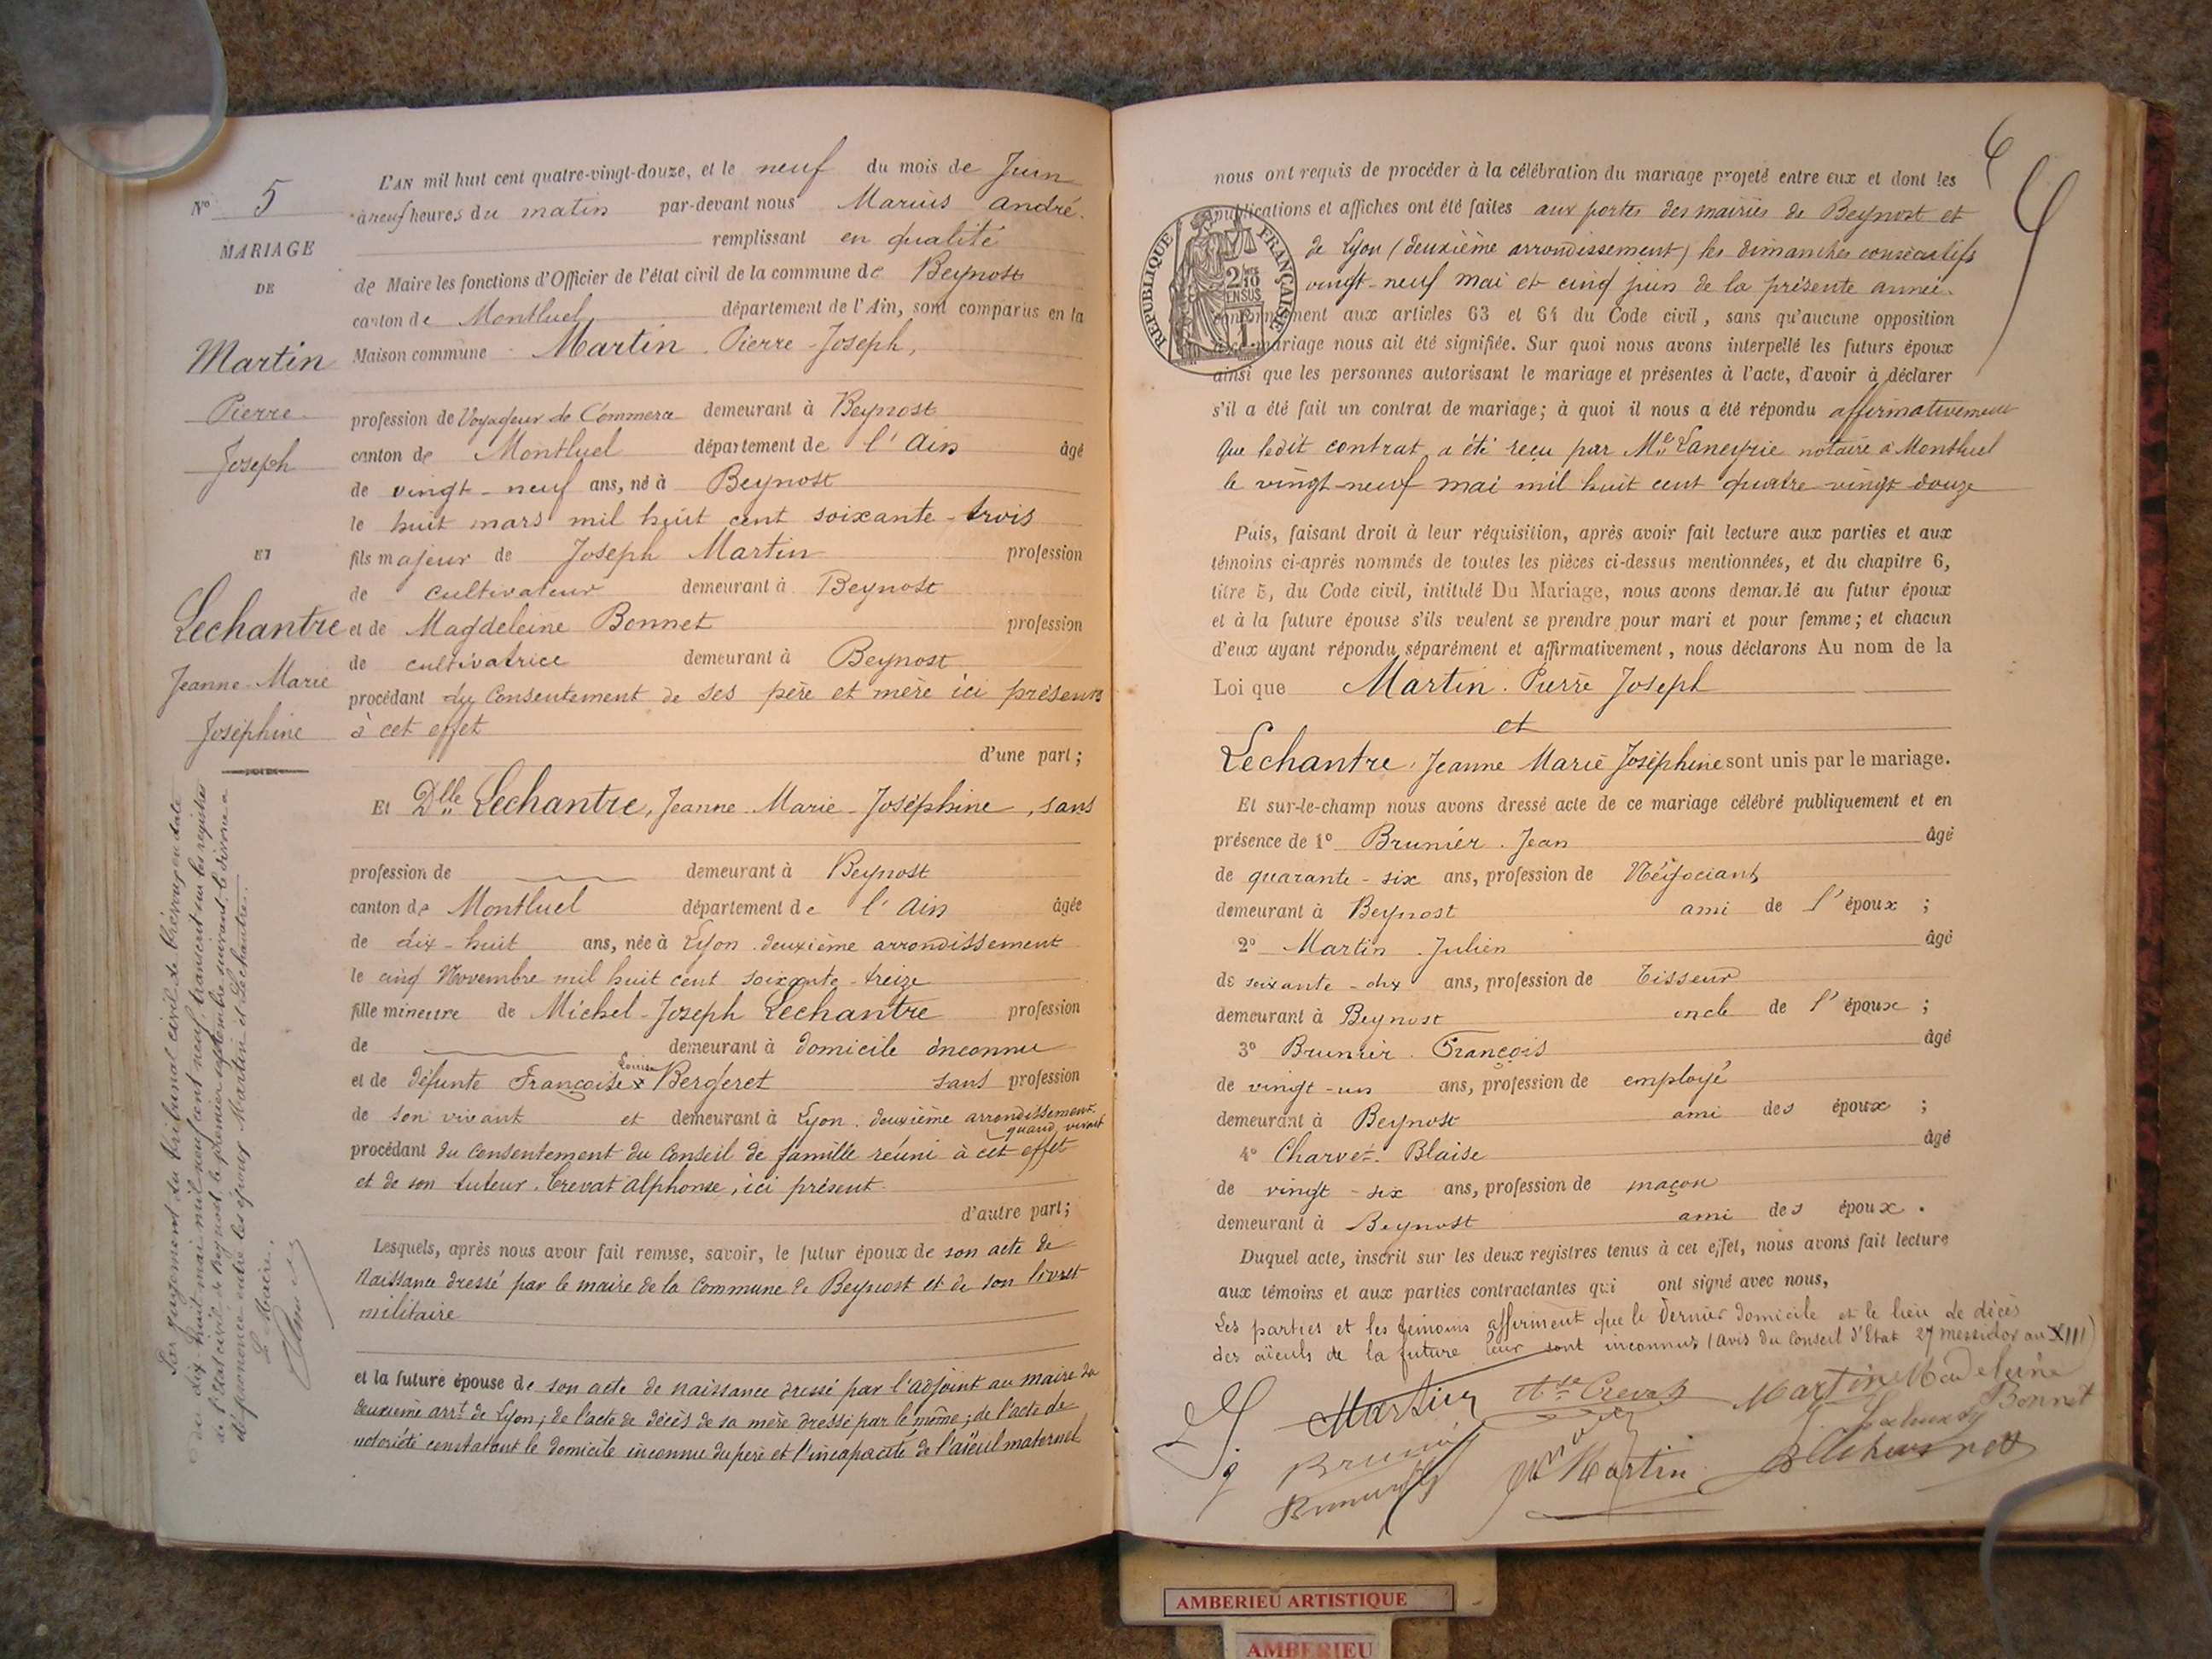 N° 5
MARIAGE
DE
Martin
Pierre
Joseph
ET
Lechantre
Jeanne-Marie
Joséphine
Par jugement du tribunal civil de Trévoux en date
du dix-huit mai mil neuf cent neuf, transcrit sur les registres
de l'état civil de Beynost le premier septembre suivant, le divorce a
été prononcé entre les époux Martin et Lechantre.
Le Maire,
L'AN mil huit cent quatre-vingt-douze, et le neuf du mois de Juin
à neuf heures du matin par-devant nous Marius André.
remplissant en qualité
de Maire les fonctions d'Officier de l'état civil de la commune de Beynost
canton de Montluel département de l'Ain, sont comparus en la
Maison commune Martin Pierre-Joseph,
profession de Voyageur de Commerce demeurant à Beynost
canton de Montluel département de l'Ain âgé
de vingt-neuf ans, né à Beynost
le huit mars mil huit cent soixante-trois
fils majeur de Joseph Martin profession
de cultivateur demeurant à Beynost
et de Magdeleine Bonnet profession
de cultivatrice demeurant à Beynost
procédant du Consentement de ses père et mère ici présents
à cet effet
d'une part;
Et Dlle Lechantre, Jeanne-Marie-Joséphine, sans
profession de demeurant à Beynost
canton de Montluel département de l'Ain âgée
de dix-huit ans, née à Lyon deuxième arrondissement
le cinq Novembre mil huit cent soixante-treize
fille mineure de Michel-Joseph Lechantre profession
de demeurant à domicile inconnu
et de défunte Françoise Louise Bergeret sans profession
de son vivant et demeurant à Lyon deuxième arrondissement
quand vivait
procédant du consentement du Conseil de famille réuni à cet effet
et de son tuteur Crevat Alphonse, ici présent
d'autre part;
Lesquels, après nous avoir fait remise, savoir, le futur époux de son acte de
Naissance dressé par le maire de la Commune de Beynost et de son livret
militaire
et la future épouse de son acte de naissance dressé par l'adjoint au maire du
deuxième arrt de Lyon; de l'acte de décès de sa mère dressé par le même; de l'acte de
notoriété constatant le domicile inconnu du père et l'incapacité de l'aïeul maternel
nous ont requis de procéder à la célébration du mariage projeté entre eux et dont les
publications et affiches ont été faites aux portes des mairies de Beynost et
de Lyon (deuxième arrondissement) les dimanches consécutifs
vingt-neuf mai et cinq juin de la présente année.
conformément aux articles 63 et 64 du Code civil, sans qu'aucune opposition
au mariage nous ait été signifiée. Sur quoi nous avons interpellé les futurs époux
ainsi que les personnes autorisant le mariage et présentes à l'acte, d'avoir à déclarer
s'il a été fait un contrat de mariage; à quoi il nous a été répondu affirmativement
que ledit contrat a été reçu par Me Laneyrie notaire à Montluel
le vingt-neuf mai mil huit cent quatre-vingt-douze
Puis, faisant droit à leur réquisition, après avoir fait lecture aux parties et aux
témoins ci-après nommés de toutes les pièces ci-dessus mentionnées, et du chapitre 6,
titre 5, du Code civil, intitulé Du Mariage, nous avons demandé au futur époux
et à la future épouse s'ils veulent se prendre pour mari et pour femme; et chacun
d'eux ayant répondu séparément et affirmativement, nous déclarons Au nom de la
Loi que Martin Pierre Joseph
et
Lechantre, Jeanne Marie Joséphine sont unis par le mariage.
Et sur-le-champ nous avons dressé acte de ce mariage célébré publiquement et en
présence de 1° Brunier Jean âgé
de quarante-six ans, profession de Négociant
demeurant à Beynost ami de l'époux ;
2° Martin Julien âgé
de soixante-dix ans, profession de Tisseur
demeurant à Beynost oncle de l'époux ;
3° Brunier François âgé
de vingt-un ans, profession de employé
demeurant à Beynost ami des époux ;
4° Charvet Blaise âgé
de vingt-six ans, profession de maçon
demeurant à Beynost ami des époux.
Duquel acte, inscrit sur les deux registres tenus à cet effet, nous avons fait lecture
aux témoins et aux parties contractantes qui ont signé avec nous,
Les parties et les témoins affirment que le dernier domicile et le lieu de décès
des aïeuls de la future leur sont inconnus (avis du Conseil d'Etat 27 messidor an XIII)
Martin Alse Crevat Martin Madeleine
Bonnet
Martin
RÉPUBLIQUE FRANÇAISE
2/10 EN SUS
AMBERIEU ARTISTIQUE
AMBERIEU